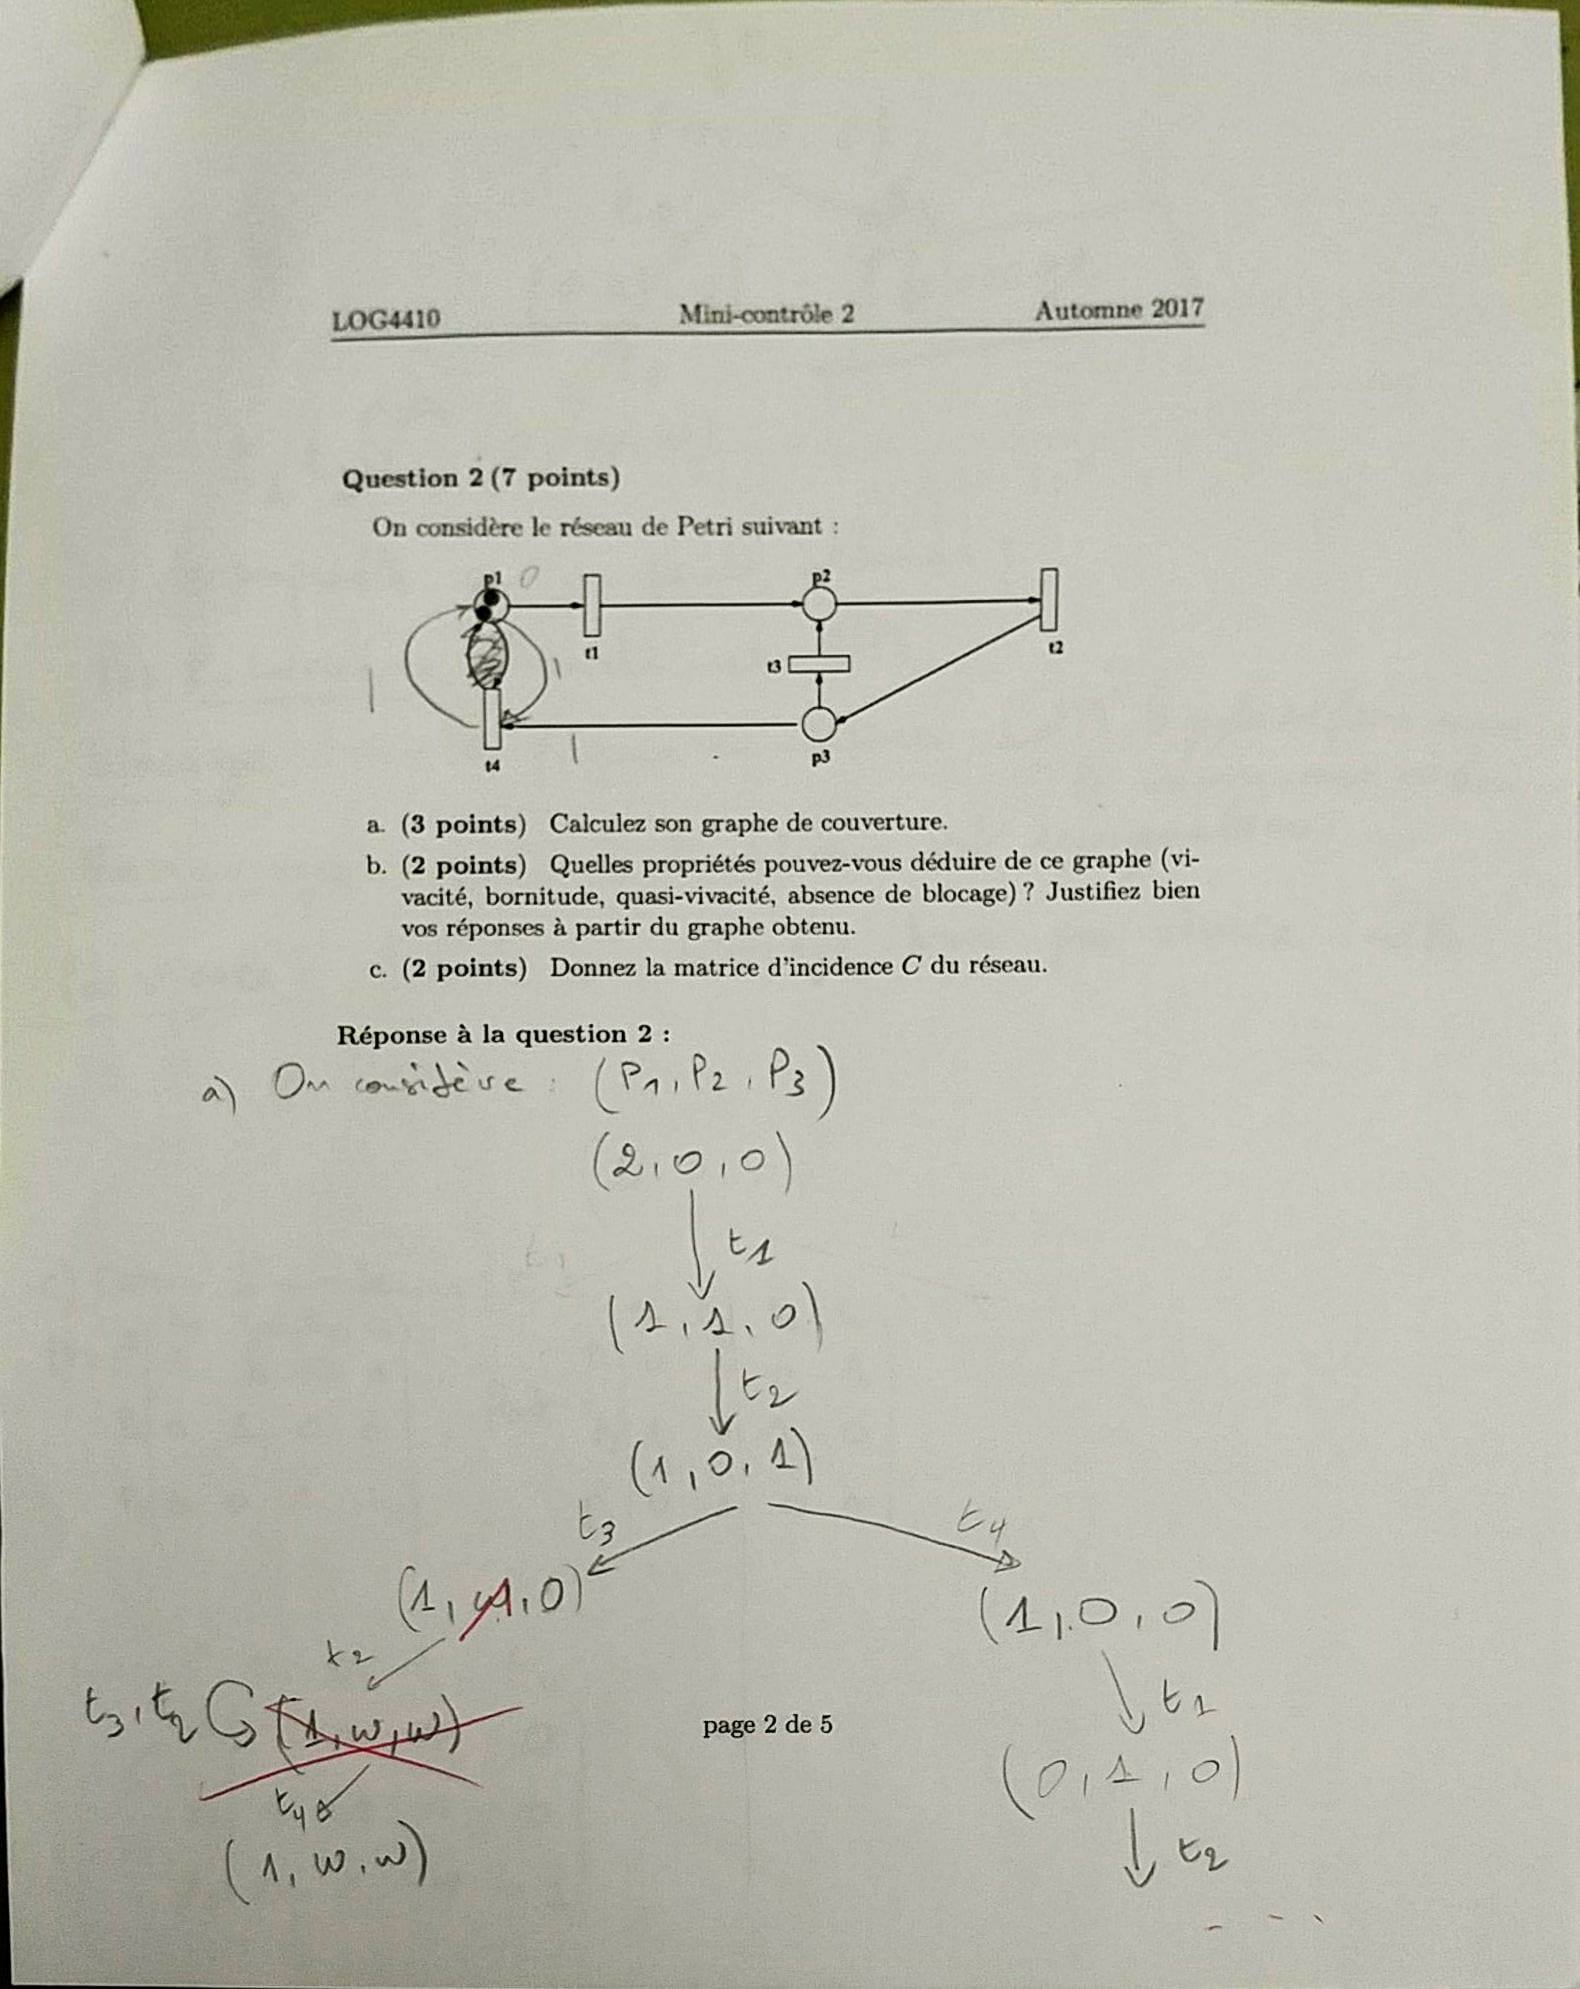 LOG4410 Mini-contrôle 2 Automne 2017
Question 2 (7 points)
On considère le réseau de Petri suivant :
p1 0 p2
t1 t3 t2
1 1
1
t4 p3
a. (3 points) Calculez son graphe de couverture.
b. (2 points) Quelles propriétés pouvez-vous déduire de ce graphe (vi-
vacité, bornitude, quasi-vivacité, absence de blocage) ? Justifiez bien
vos réponses à partir du graphe obtenu.
c. (2 points) Donnez la matrice d'incidence C du réseau.
Réponse à la question 2 :
a) On considère : (P1, P2, P3)
(2, 0, 0)
t1
(1, 1, 0)
t2
(1, 0, 1)
t3 t4
(1, 1, 0) (1, 0, 0)
t2 t1
t3, t2 (1, w, w) page 2 de 5
(0, 1, 0)
t4 t2
(1, w, w)
...